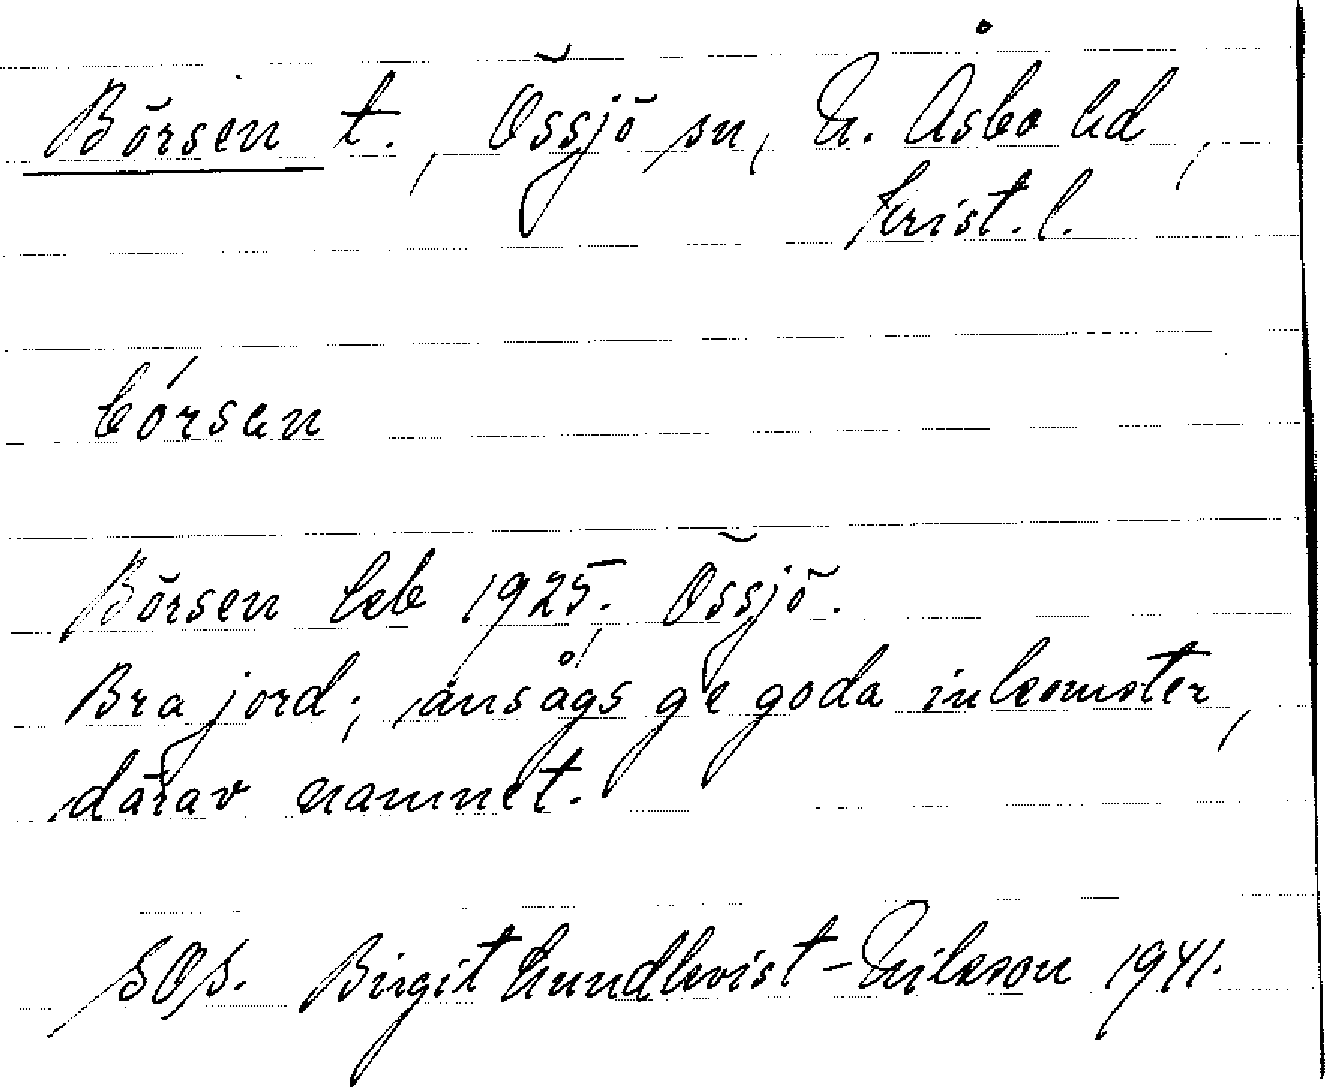 Börsen t., Össjö sn, N. Åsbo hd,
Krist. l.
bórsan
Börsen leb 1925, Össjö.
Bra jord; ansågs ge goda inkomster,
därav namnet.
SOS. Birgit Lundkvist-Nilsson 1941.